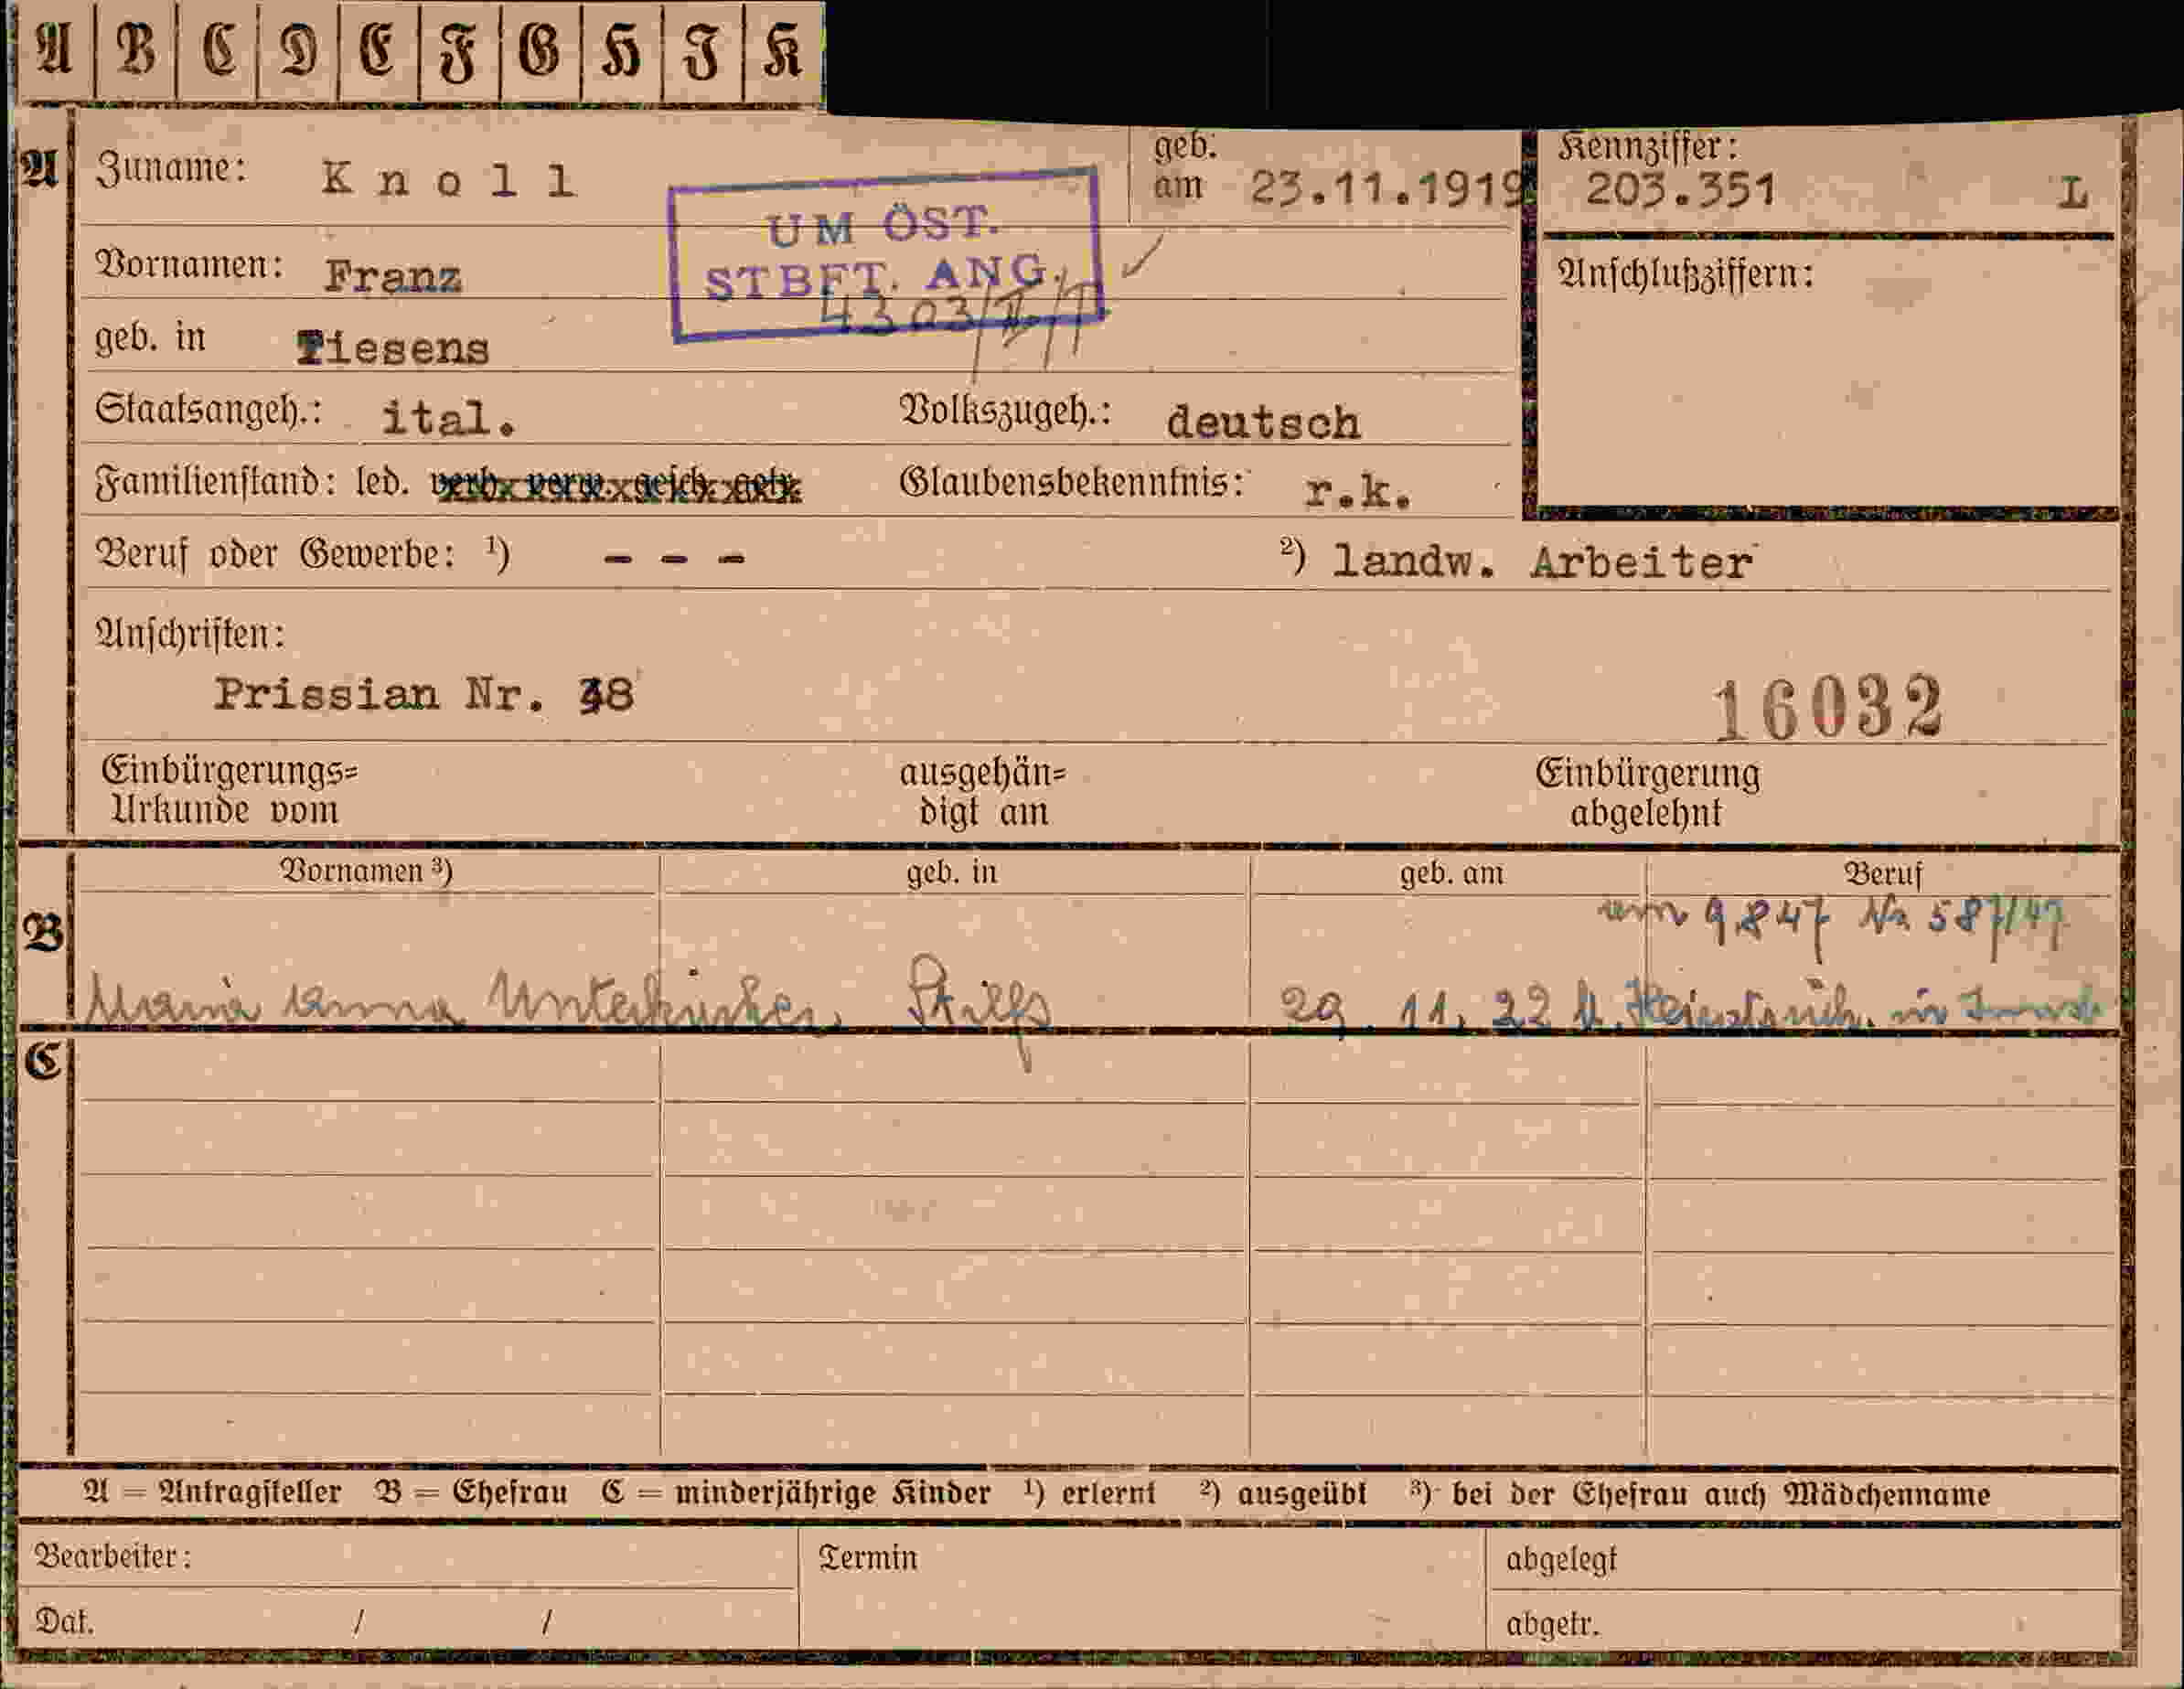 A B C D E F G H I K
A Zuname: Knoll geb. am 23.11.1919 Kennziffer: 203.351 L
UM ÖST.
STBFT. ANG.
4303/II/T
Vornamen: Franz Anschlußziffern:
geb. in Tiesens
Staatsangeh.: ital. Volkszugeh.: deutsch
Familienstand: led. verh. verw. gesch. getr. Glaubensbekenntnis: r.k.
Beruf oder Gewerbe: ¹) - - - ²) landw. Arbeiter
Anschriften:
Prissian Nr. 38
16032
Einbürgerungs= ausgehän= Einbürgerung
Urkunde vom digt am abgelehnt
Vornamen ³) geb. in geb. am Beruf
B
9.8.47 Nr 587/47
Maria Anna Stilfs 29. 11. 22 in
C
A = Antragsteller B = Ehefrau C = minderjährige Kinder ¹) erlernt ²) ausgeübt ³) bei der Ehefrau auch Mädchenname
Bearbeiter: Termin abgelegt
Dat. / / abgetr.